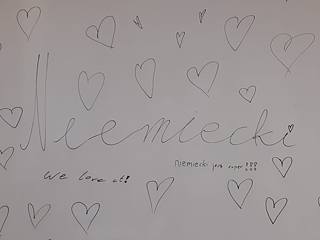 Niemiecki
niemiecki jest super !!!
We love it!